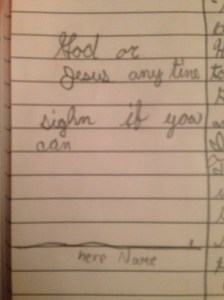 God or
Jesus any time
sighn if you
can
here Name